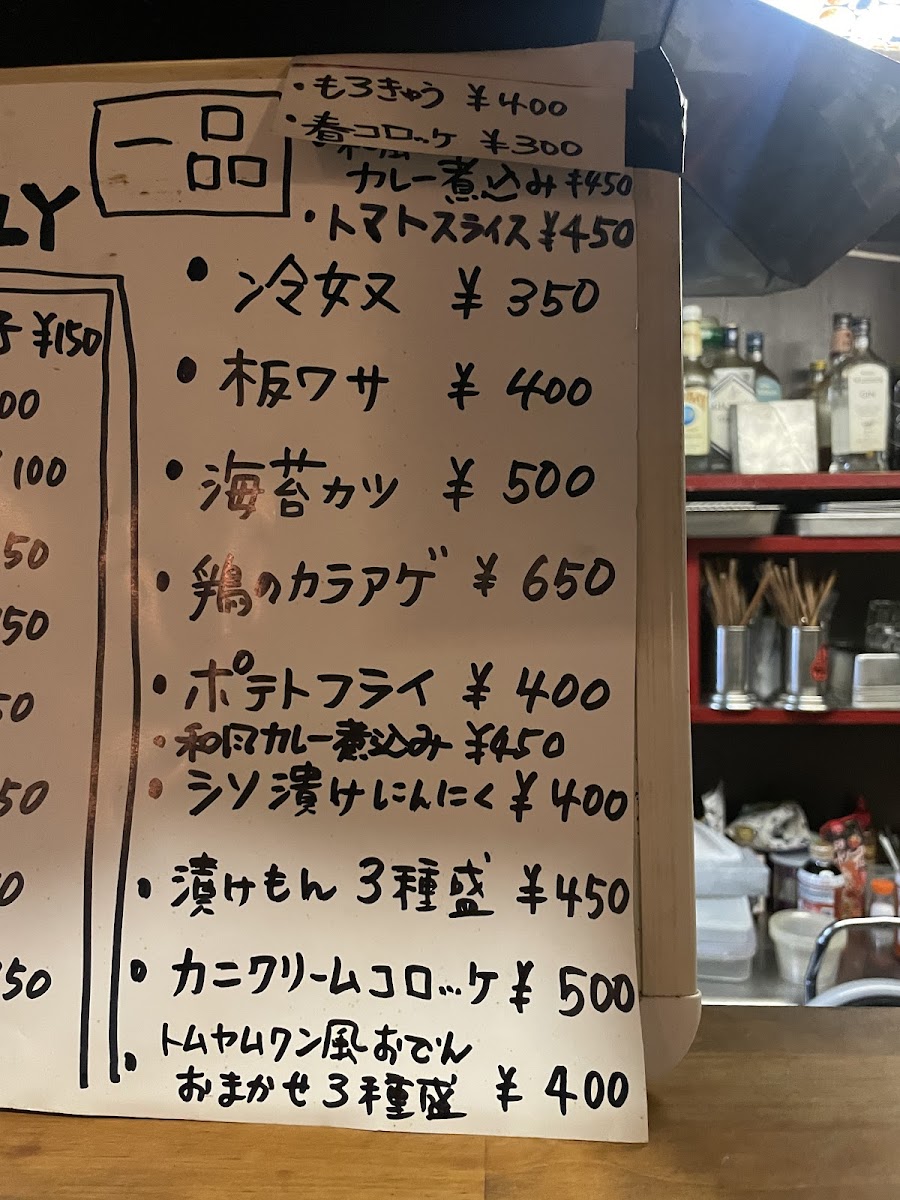 ・もろきゅう ¥400
・春コロッケ ¥300
カレー煮込み ¥450
・トマトスライス ¥450
一品
LY
・冷奴 ¥350
・板ワサ ¥400
・海苔カツ ¥500
・鶏のカラアゲ ¥650
・ポテトフライ ¥400
・和風カレー煮込み ¥450
・シソ漬けにんにく ¥400
・漬けもん 3種盛 ¥450
・カニクリームコロッケ ¥500
・トムヤムクン風おでん
おまかせ3種盛 ¥400
子 ¥150
00
100
50
50
50
50
0
50
GIN